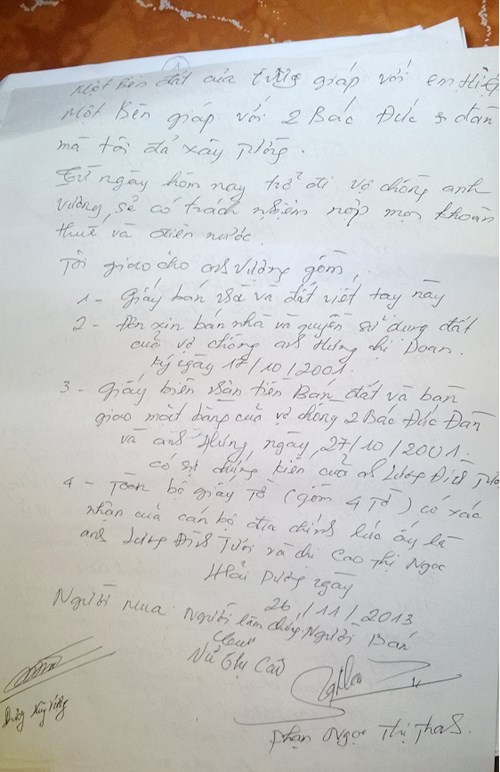 Một bên đất của tư giáp với em Hiệp
Một Bên giáp với 2 Bác Đức Đan
mà tôi đã xây tường.
Từ ngày hôm nay trở đi vợ chồng anh
Vương, sẽ có trách nhiệm nộp mọi khoản
thuế và điện nước.
Tôi giao cho anh Vương gồm,
1 - Giấy bán nhà và đất viết tay này
2 - Đơn xin bán nhà và quyền sử dụng đất
của vợ chồng anh Hưng chị Doan.
Ký ngày 17/10/2001.
3 - Giấy biên nhận tiền Bán đất và bàn
giao mặt bằng của vợ chồng 2 Bác Đức Đan
và anh Hưng, ngày, 27/10/2001
có sự chứng kiến của anh Lương Đình
4 - Toàn bộ giấy tờ (gồm 4 tờ) có xác
nhận của cán bộ địa chính lúc ấy là
anh Lương Đình Tưới và chị Cao Thị Ngọc
Hải Dương ngày
26/11/2013
Người mua Người làm chứng Người Bán
Vũ Thị Cao
Phạm Ngọc Thị Thanh.